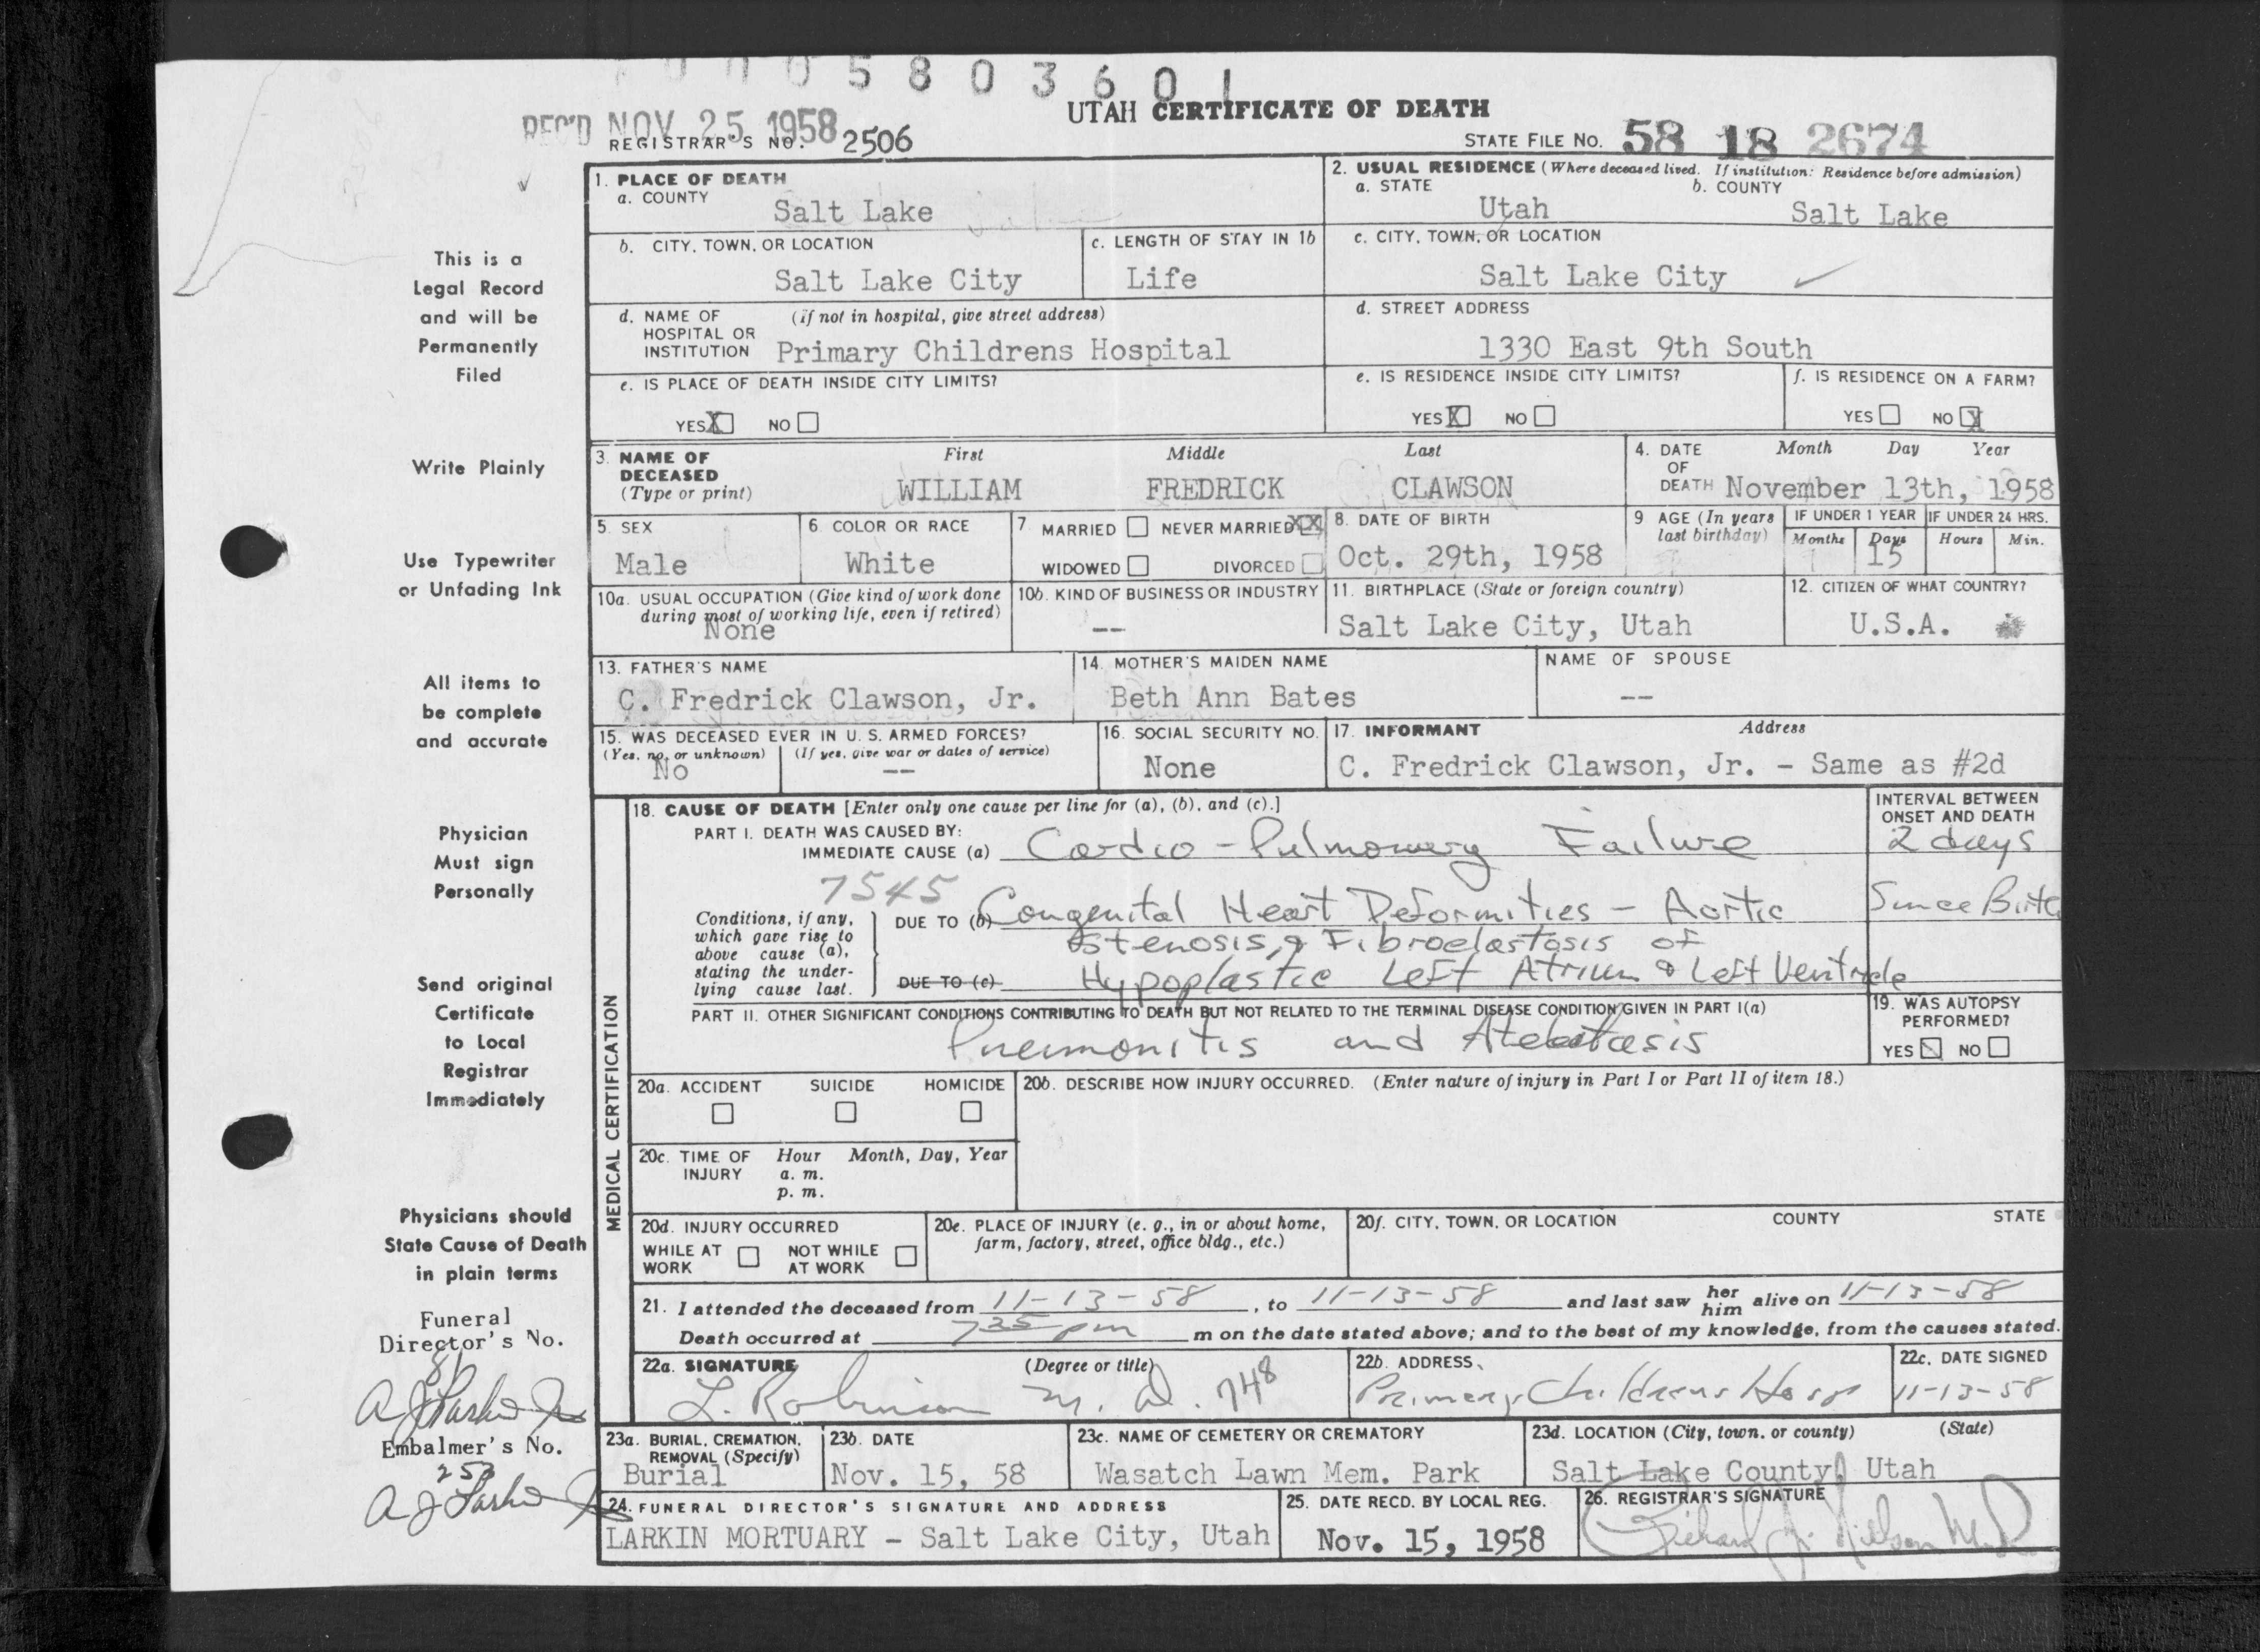 0 0 0 5 8 0 3 6 0 1
UTAH CERTIFICATE OF DEATH
REC'D NOV 25 1958
REGISTRAR'S NO. 2506
STATE FILE NO. 58 18 2674
1. PLACE OF DEATH
a. COUNTY
Salt Lake
2. USUAL RESIDENCE (Where deceased lived. If institution: Residence before admission)
a. STATE b. COUNTY
Utah Salt Lake
b. CITY, TOWN, OR LOCATION
Salt Lake City
c. LENGTH OF STAY IN 1b
Life
c. CITY, TOWN, OR LOCATION
Salt Lake City
d. NAME OF HOSPITAL OR INSTITUTION (If not in hospital, give street address)
Primary Childrens Hospital
d. STREET ADDRESS
1330 East 9th South
e. IS PLACE OF DEATH INSIDE CITY LIMITS?
YES X NO
e. IS RESIDENCE INSIDE CITY LIMITS?
YES X NO
f. IS RESIDENCE ON A FARM?
YES NO X
3. NAME OF DECEASED (Type or print)
First Middle Last
WILLIAM FREDRICK CLAWSON
4. DATE OF DEATH Month Day Year
November 13th, 1958
5. SEX
Male
6. COLOR OR RACE
White
7. MARRIED NEVER MARRIED XX
WIDOWED DIVORCED
8. DATE OF BIRTH
Oct. 29th, 1958
9 AGE (In years last birthday)
IF UNDER 1 YEAR IF UNDER 24 HRS.
Months Days Hours Min.
15
10a. USUAL OCCUPATION (Give kind of work done during most of working life, even if retired)
None
10b. KIND OF BUSINESS OR INDUSTRY
--
11. BIRTHPLACE (State or foreign country)
Salt Lake City, Utah
12. CITIZEN OF WHAT COUNTRY?
U.S.A.
13. FATHER'S NAME
C. Fredrick Clawson, Jr.
14. MOTHER'S MAIDEN NAME
Beth Ann Bates
NAME OF SPOUSE
--
15. WAS DECEASED EVER IN U. S. ARMED FORCES?
(Yes, no, or unknown) (If yes, give war or dates of service)
No --
16. SOCIAL SECURITY NO.
None
17. INFORMANT Address
C. Fredrick Clawson, Jr. - Same as #2d
MEDICAL CERTIFICATION
18. CAUSE OF DEATH [Enter only one cause per line for (a), (b), and (c).]
INTERVAL BETWEEN ONSET AND DEATH
PART I. DEATH WAS CAUSED BY:
IMMEDIATE CAUSE (a) Cardio-Pulmonary Failure 2 days
7545
Conditions, if any, which gave rise to above cause (a), stating the underlying cause last.
DUE TO (b) Congenital Heart Deformities - Aortic Since Birth
Stenosis, & Fibroelastosis of
DUE TO (c) Hypoplastic Left Atrium & Left Ventricle
PART II. OTHER SIGNIFICANT CONDITIONS CONTRIBUTING TO DEATH BUT NOT RELATED TO THE TERMINAL DISEASE CONDITION GIVEN IN PART I(a)
Pneumonitis and Atelectasis
19. WAS AUTOPSY PERFORMED?
YES NO
20a. ACCIDENT SUICIDE HOMICIDE
20b. DESCRIBE HOW INJURY OCCURRED. (Enter nature of injury in Part I or Part II of item 18.)
20c. TIME OF INJURY Hour Month, Day, Year
a. m.
p. m.
20d. INJURY OCCURRED
WHILE AT WORK NOT WHILE AT WORK
20e. PLACE OF INJURY (e. g., in or about home, farm, factory, street, office bldg., etc.)
20f. CITY, TOWN, OR LOCATION COUNTY STATE
21. I attended the deceased from 11-13-58, to 11-13-58 and last saw her him alive on 11-13-58
Death occurred at 7 35 pm m on the date stated above; and to the best of my knowledge, from the causes stated.
22a. SIGNATURE (Degree or title)
L. Robinson M. D. 748
22b. ADDRESS
Primary Childrens Hosp
22c. DATE SIGNED
11-13-58
23a. BURIAL, CREMATION, REMOVAL (Specify)
Burial
23b. DATE
Nov. 15, 58
23c. NAME OF CEMETERY OR CREMATORY
Wasatch Lawn Mem. Park
23d. LOCATION (City, town, or county) (State)
Salt Lake County, Utah
24. FUNERAL DIRECTOR'S SIGNATURE AND ADDRESS
LARKIN MORTUARY - Salt Lake City, Utah
25. DATE RECD. BY LOCAL REG.
Nov. 15, 1958
26. REGISTRAR'S SIGNATURE
Richard J. Nielson M.D.
This is a
Legal Record
and will be
Permanently
Filed
Write Plainly
Use Typewriter
or Unfading Ink
All items to
be complete
and accurate
Physician
Must sign
Personally
Send original
Certificate
to Local
Registrar
Immediately
Physicians should
State Cause of Death
in plain terms
Funeral
Director's No.
81
Embalmer's No.